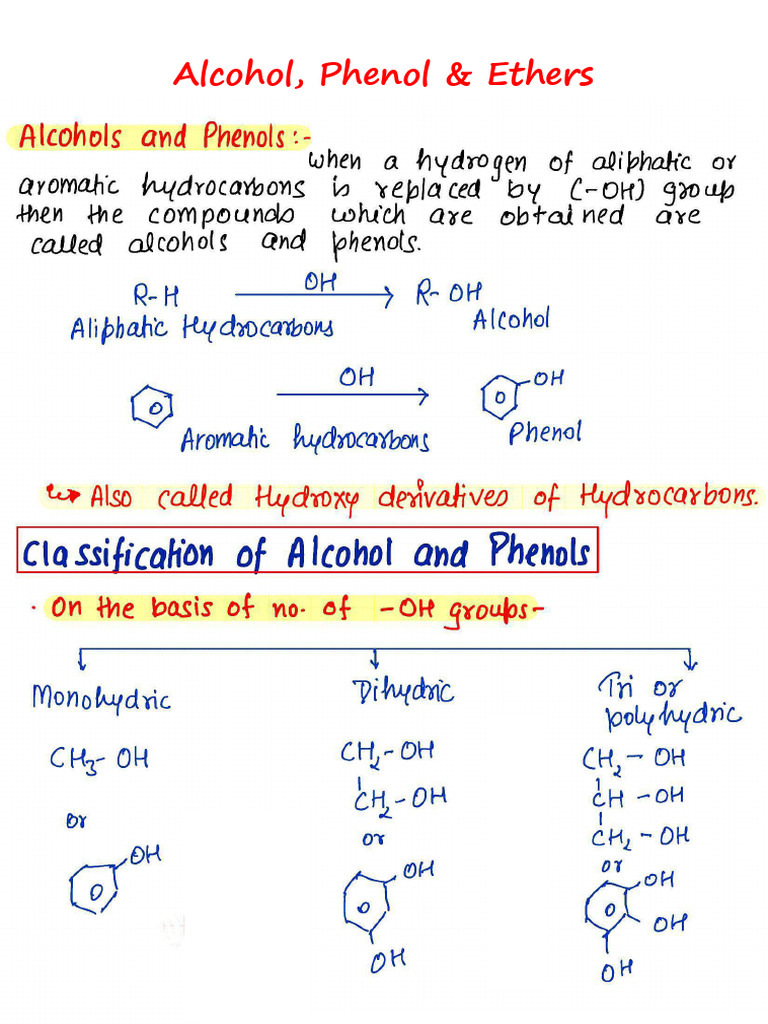 Alcohol, Phenol & Ethers
Alcohols and Phenols:-
When a hydrogen of aliphatic or
aromatic hydrocarbons is replaced by (-OH) group
then the compounds which are obtained are
called alcohols and phenols.
R-H OH R-OH
Aliphatic Hydrocarbons Alcohol
OH OH
Aromatic hydrocarbons Phenol
Also called Hydroxy derivatives of Hydrocarbons.
Classification of Alcohol and Phenols
• On the basis of no. of -OH groups-
Monohydric Dihydric Tri or
polyhydric
CH₃-OH CH₂-OH CH₂-OH
CH₂-OH CH-OH
or or CH₂-OH
or
OH OH OH
OH
OH OH